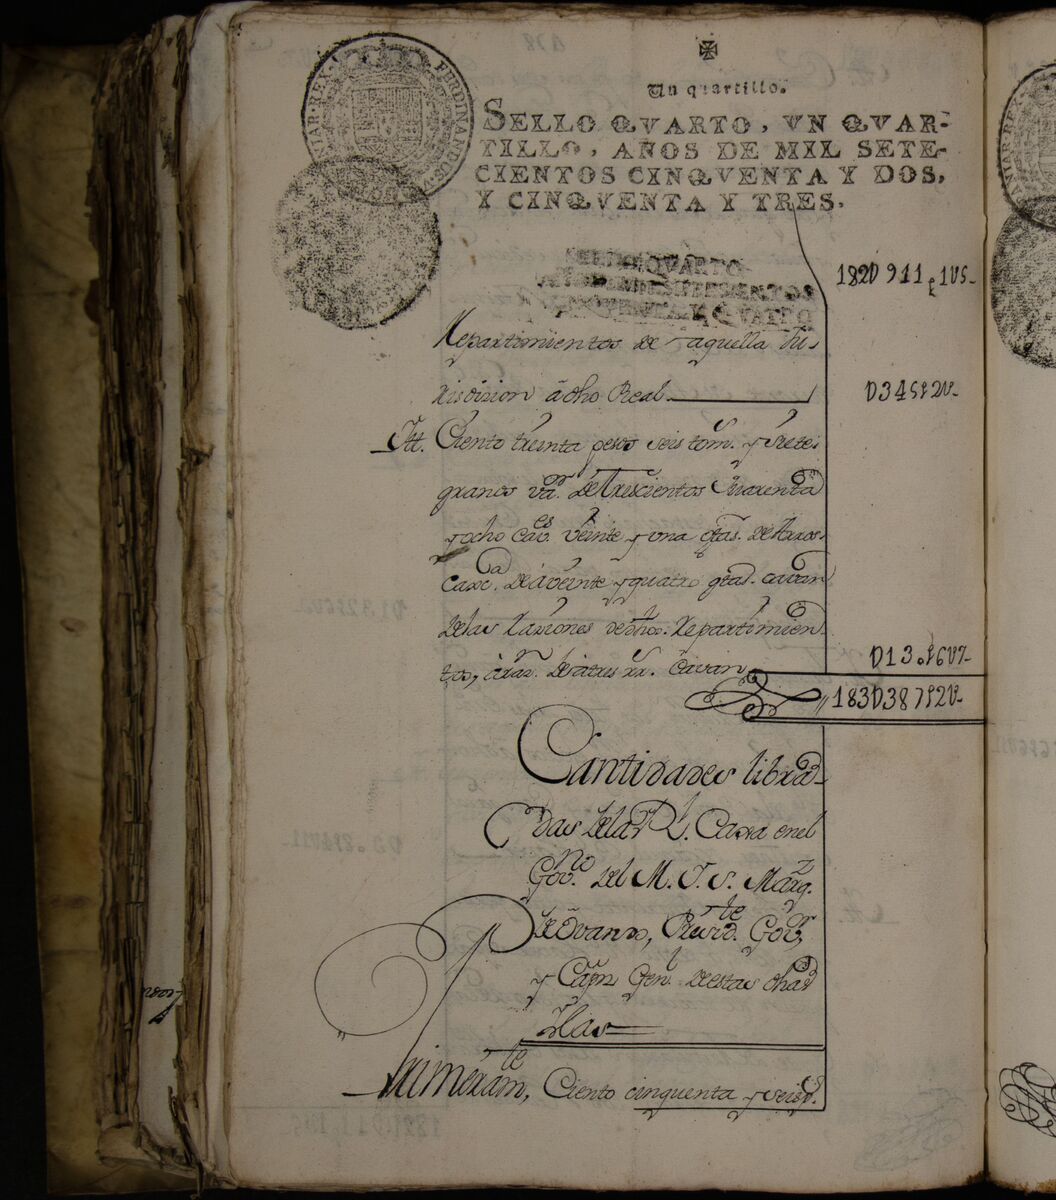 Un quartillo.
SELLO QVARTO, VN QVAR-
TILLO, AÑOS DE MIL SETE-
CIENTOS CINQVENTA Y DOS,
Y CINQVENTA Y TRES.
SELLO QVARTO
CINQVENTA Y QVATRO
182D911p1U5-
Repartimientos de aquella Ju-
risdizion á dho Real
D345p2U-
Itt. Ciento treinta pesos seis tom.s y siete
granos v.or de Trescientos Quarenta
y ocho cav.es veinte y una gtas. de Arros
Casc.a de á veinte y quatro gtas. cavan
de las Raziones de dhos. Repartimien-
tos, á raz.n de á tres rr.s Cavan
D130p6U7-
183D387p2U-
Cantidades libra-
das de la R.l Caxa en el
Gov.no del M. I. S. Marq.s
de Ovando, Presid.te Gov.or
y Cap.n Gen.l de estas dhas
Yslas
Primeram.te, Ciento cinquenta y seis p.s